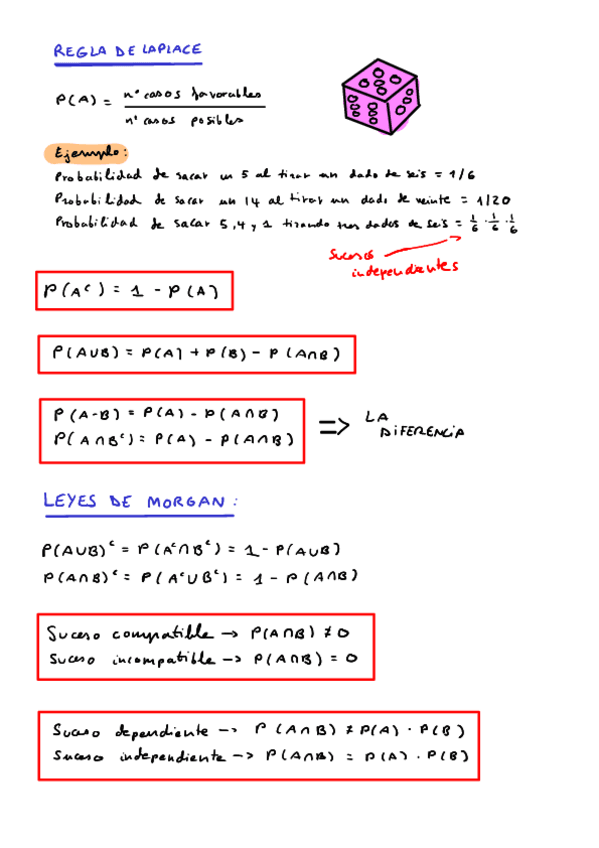 REGLA DE LAPLACE
P(A) = nº casos favorables / nº casos posibles
Ejemplo:
Probabilidad de sacar un 5 al tirar un dado de seis = 1/6
Probabilidad de sacar un 14 al tirar un dado de veinte = 1/20
Probabilidad de sacar 5, 4 y 1 tirando tres dados de seis = 1/6 · 1/6 · 1/6
Sucesos
independientes
P(Aᶜ) = 1 - P(A)
P(A∪B) = P(A) + P(B) - P(A∩B)
P(A-B) = P(A) - P(A∩B)
P(A∩Bᶜ) = P(A) - P(A∩B)
=> LA
DIFERENCIA
LEYES DE MORGAN:
P(A∪B)ᶜ = P(Aᶜ∩Bᶜ) = 1 - P(A∪B)
P(A∩B)ᶜ = P(Aᶜ∪Bᶜ) = 1 - P(A∩B)
Suceso compatible → P(A∩B) ≠ 0
Suceso incompatible → P(A∩B) = 0
Suceso dependiente → P(A∩B) ≠ P(A) · P(B)
Suceso independiente → P(A∩B) = P(A) · P(B)